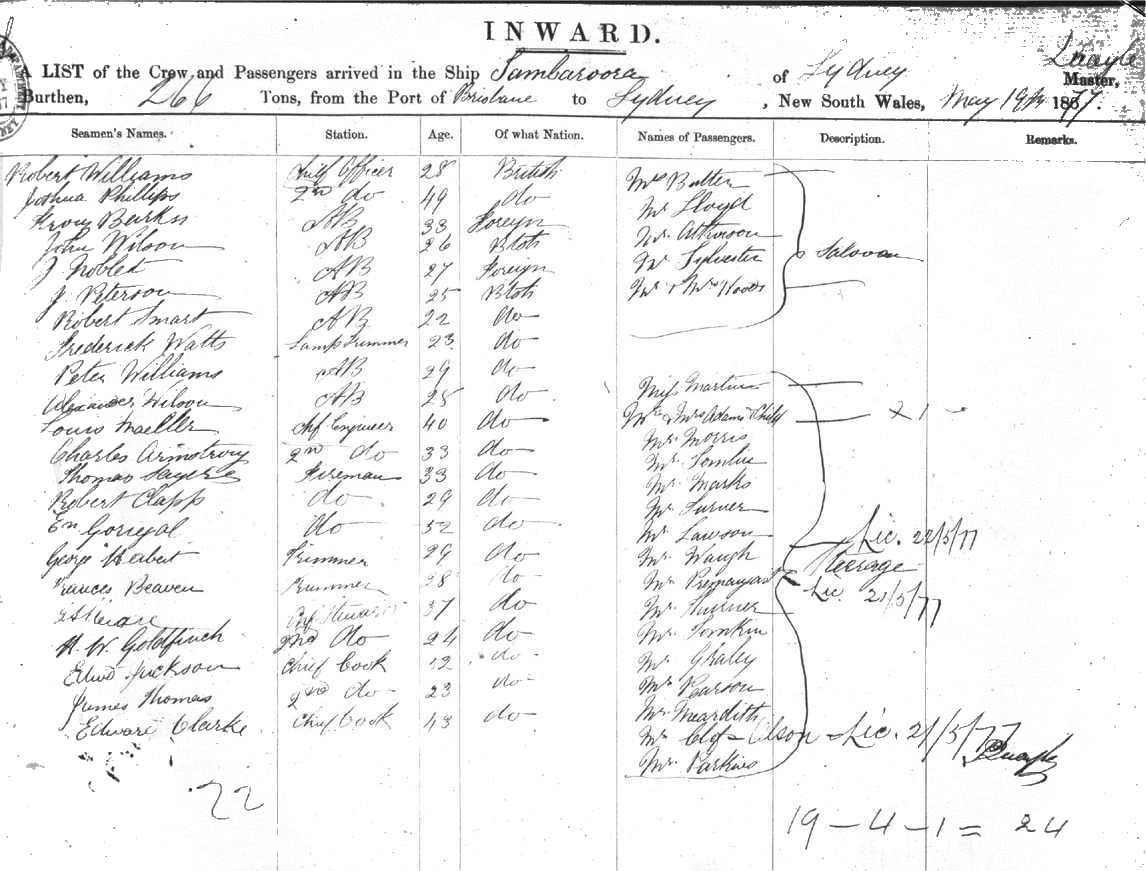 INWARD.
Quayle
A LIST of the Crew and Passengers arrived in the Ship Tambaroora of Sydney Master,
Burthen, 266 Tons, from the Port of Brisbane to Sydney, New South Wales, May 19th 1877.
Seamen's Names. Station. Age. Of what Nation. Names of Passengers. Description. Remarks.
Robert Williams Chief Officer 28 British Mrs Butter
Joshua Phillips 2nd do 49 do Mr Lloyd
AB 33 Foreyn Mr Atkinson
John Wilson AB 26 Btsh Mr Sylvester Saloon
J Noblet AB 27 Foreign Mr & Mrs Woods
J. Peterson AB 25 Btsh
Robert Smart AB 22 do
Frederick Watts Lamp Trimmer 23 do
Peter Williams AB 29 do Miss Martin
Alexander Wilson AB 25 do Mr & Mrs Adams Child X 1
Louis Chf Engineer 40 do Mr Morris
Charles Armstrong 2nd do 33 do Mr Tomlin
Thomas Sayers Fireman 33 do Mr Marks
Robert Clapp do 29 do Mr Turner
do 52 do Mr Lawson Lic. 22/5/77
George Trimmer 29 do Mr Waugh Steerage
Frances Beaven Trimmer 28 do Mr Lic. 21/5/77
Chf Steward 37 do Mr
H. W. Goldfinch 2nd do 24 do Mr Tomkin
Edwd Jackson Chief Cook 12 do Mr
James Thomas 2nd do 23 do Mr Pearson
Edward Clarke Chief Cook 43 do Mr Meardith
Mr Olson Lic. 21/5/77
Mr Parkins Quayle
22
19 – 4 – 1 = 24